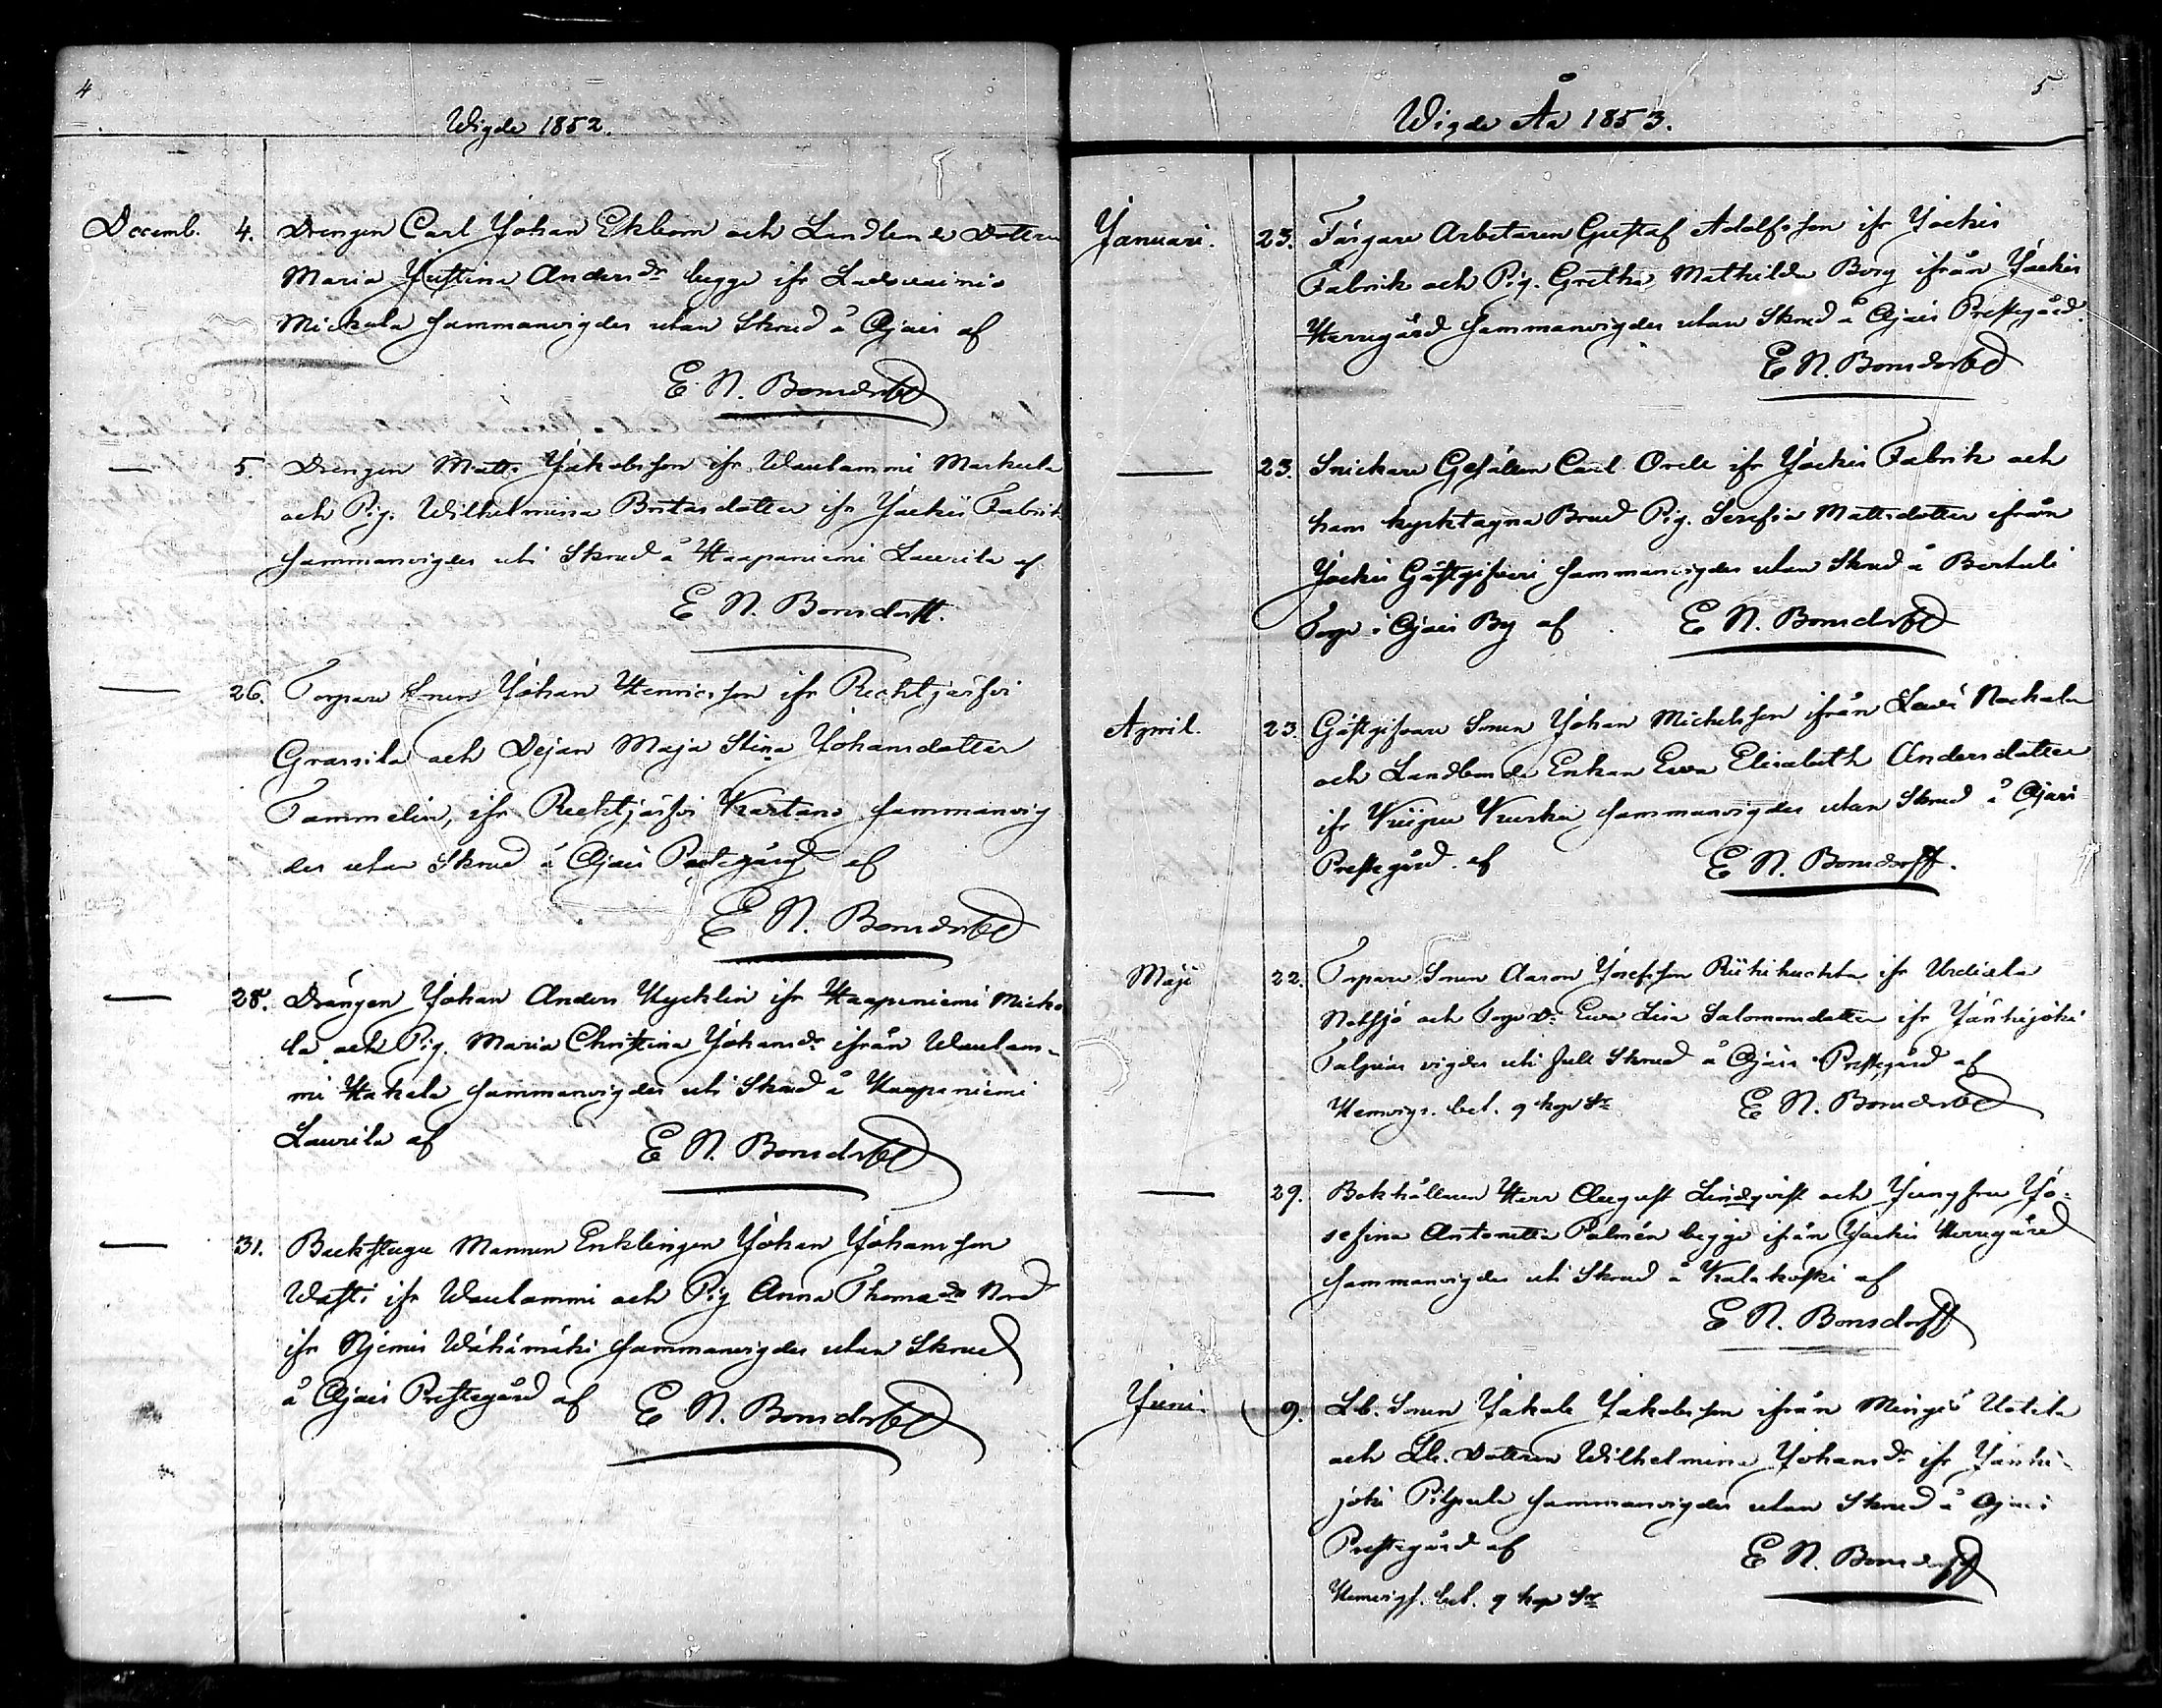 4
Wigde 1852.
Decemb. 4. Drengen Carl Johan Ekbom och Landbonde Dottren
Maria Justina Andersdr begge ifr Ladvainio
Mickola sammanvigdes utan Skrud å Ojais af
E. N. Bonsdorff
— 5. Drengen Matts Jakobsson ifr Waulammi Markula
och Pig. Wilhelmina Britasdotter ifr Jockis Fabrik
sammanvigdes uti Skrud å Haapaniemi Laurila af
E N. Bonsdorff.
— 26. Torpare Sonen Johan Henricsson ifr Rechtjärfvi
Grassila och Dejan Maja Stina Johansdotter
Tammelin, ifr Rechtjärfvi Kartano sammanvig
des utan Skrud å Ojais Prestegård af
E N. Bonsdorff
— 28. Drängen Johan Anders Nycklin ifr Haapaniemi Micko
la och Pig. Maria Christina Johansdr ifrån Waulam-
mi Hakala sammanvigdes uti Skrud å Haapaniemi
Laurila af E N. Bonsdorff
— 31. Backstugu Mannen Enklingen Johan Johansson
Wasti ifr Waulammi och Pig Anna Thomadr Nord
ifr Njemis Wähämäki sammanvigdes utan Skrud
å Ojais Prestegård af E N. Bonsdorff
5
Wigde År 1853.
Januari. 23. Färgare Arbetaren Gustaf Adolfsson ifr Jockis
Fabrik och Pig. Gretha Mathilda Borg ifrån Jockis
Herregård sammanvigdes utan Skrud å Ojais Prestegård.
E N. Bonsdorff
— 23. Snickare Gesällen Carl Orell ifr Jockis Fabrik och
hans kyrktagna Brud Pig. Serafia Mattsdotter ifrån
Jockis Gästgifveri sammanvigdes utan Skrud å Bertuli
Torp i Ojais By af E N. Bonsdorff
April. 23. Gästgifvare Sonen Johan Michelsson ifrån
och Landbonde Enkan Eva Elisabeth Andersdotter
ifr sammanvigdes utan Skrud å Ojais
Prestegård af E N. Bonsdorff.
Maji 22. Torpare Sonen Aaron Josefsson Riihihuchta ifr Urdiala
Nuttsjö och Torp dr Eva Lisa Salomonsdotter ifr Jänhijoki
Talpias vigdes uti full Skrud å Ojais Prestegård af
Hemvigs. bet. 9 kop Sr E N. Bonsdorff
— 29. Bokhållaren Herr August Lindqvist och Jungfru Jo-
sefina Antonetta Palmén begge ifrån Jockis Herregård
sammanvigdes uti Skrud å Kalakoski af
E N. Bonsdorff
Juni. 9. Lb. Sonen Jakob Jakobsson ifrån Mingiö Uotila
och Lb. Dottren Wilhelmina Johansdr ifr Jänhi-
joki Pilpala sammanvigdes utan Skrud å Ojais
Prestegård af E N. Bonsdorff
Hemvigs. bet. 9 kop Sr